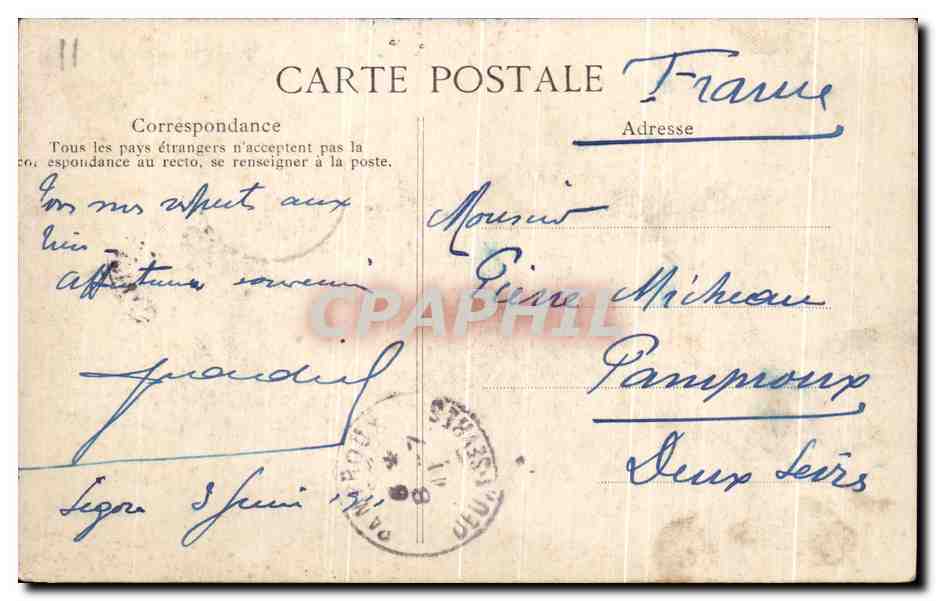 11
CARTE POSTALE
France
Correspondance
Adresse
Tous les pays étrangers n'acceptent pas la
correspondance au recto, se renseigner à la poste.
Tous nos respects aux
tiens
Affectueux souvenir
Monsieur
Pierre Micheau
Pamproux
Deux Sèvres
Ségou 3 Juin 1911
PAMPROUX
DEUX-SEVRES
CPAPHIL